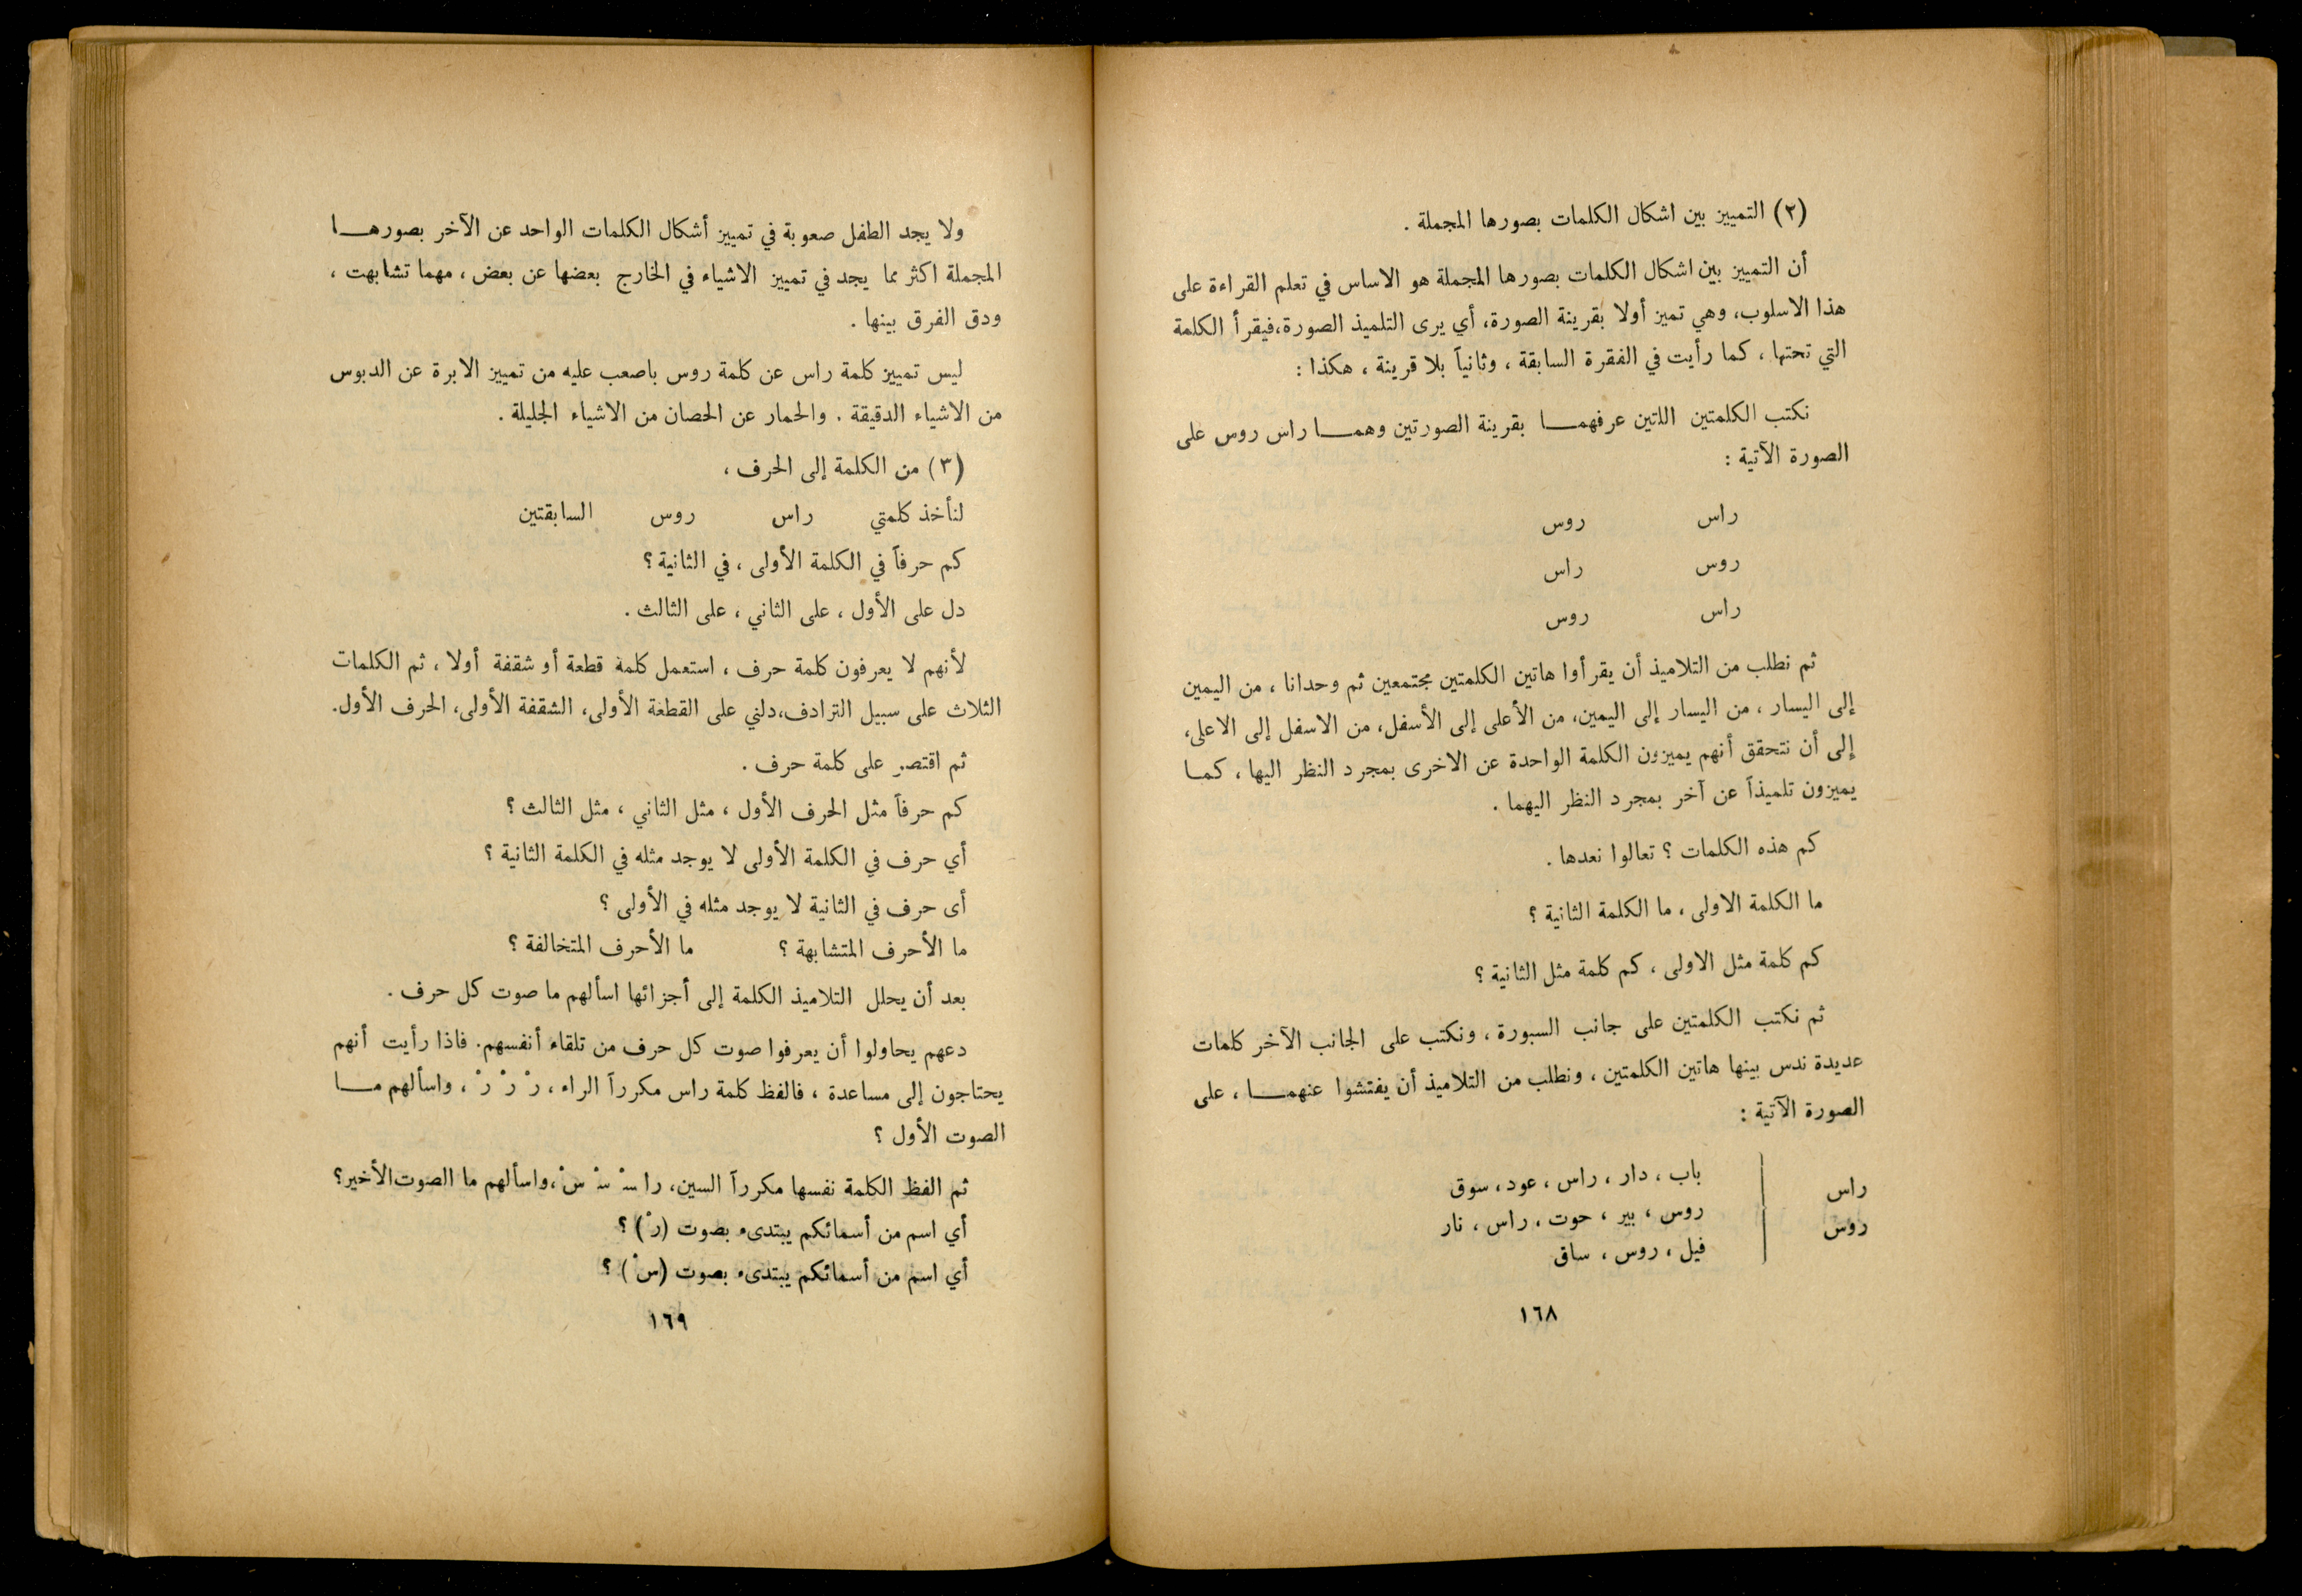 (٢) التمييز بين اشكال الكلمات بصورها المجملة .
أن التمييز بين اشكال الكلمات بصورها المجملة هو الاساس في تعلم القراءة على
هذا الاسلوب، وهي تميز أولا بقرينة الصورة، أي يرى التلميذ الصورة،فيقرأ الكلمة
التي تحتها ، كما رأيت في الفقرة السابقة ، وثانياً بلا قرينة ، هكذا :
نكتب الكلمتين اللتين عرفهمـــا بقرينة الصورتين وهمـــا راس روس على
الصورة الآتية :
راس روس
روس راس
راس روس
ثم نطلب من التلاميذ أن يقرأوا هاتين الكلمتين مجتمعين ثم وحدانا ، من اليمين
إلى اليسار ، من اليسار إلى اليمين، من الأعلى إلى الأسفل، من الاسفل إلى الاعلى،
إلى أن نتحقق أنهم يميزون الكلمة الواحدة عن الاخرى بمجرد النظر اليها ، كمـا
يميزون تلميذاً عن آخر بمجرد النظر اليهما .
كم هذه الكلمات ؟ تعالوا نعدها .
ما الكلمة الاولى ، ما الكلمة الثانية ؟
كم كلمة مثل الاولى ، كم كلمة مثل الثانية ؟
ثم نكتب الكلمتين على جانب السبورة ، ونكتب على الجانب الآخر كلمات
عديدة ندس بينها هاتين الكلمتين ، ونطلب من التلاميذ أن يفتشوا عنهمـــا ، على
الصورة الآتية :
راس | باب ، دار ، راس ، عود ، سوق
روس | روس ، بير ، حوت ، راس ، نار
فيل ، روس ، ساق
١٦٨
ولا يجد الطفل صعوبة في تمييز أشكال الكلمات الواحد عن الآخر بصورهـــا
المجملة اكثر مما يجد في تمييز الاشياء في الخارج بعضها عن بعض ، مهما تشابهت ،
ودق الفرق بينها .
ليس تمييز كلمة راس عن كلمة روس باصعب عليه من تمييز الابرة عن الدبوس
من الاشياء الدقيقة . والحمار عن الحصان من الاشياء الجليلة .
(٣) من الكلمة إلى الحرف ،
لنأخذ كلمتي راس روس السابقتين
كم حرفاً في الكلمة الأولى ، في الثانية ؟
دل على الأول ، على الثاني ، على الثالث .
لأنهم لا يعرفون كلمة حرف ، استعمل كلمة قطعة أو شقفة أولا ، ثم الكلمات
الثلاث على سبيل الترادف،دلني على القطعة الأولى، الشقفة الأولى، الحرف الأول.
ثم اقتصر على كلمة حرف .
كم حرفاً مثل الحرف الأول ، مثل الثاني ، مثل الثالث ؟
أي حرف في الكلمة الأولى لا يوجد مثله في الكلمة الثانية ؟
أى حرف في الثانية لا يوجد مثله في الأولى ؟
ما الأحرف المتشابهة ؟ ما الأحرف المتخالفة ؟
بعد أن يحلل التلاميذ الكلمة إلى أجزائها اسألهم ما صوت كل حرف .
دعهم يحاولوا أن يعرفوا صوت كل حرف من تلقاء أنفسهم. فاذا رأيت أنهم
يحتاجون إلى مساعدة ، فالفظ كلمة راس مكرراً الراء ، رْ رْ رْ ، واسألهم مـــا
الصوت الأول ؟
ثم الفظ الكلمة نفسها مكرراً السين، را سْـ سْـ سْ ،واسألهم ما الصوت الأخير؟
أي اسم من أسمائكم يبتدىء بصوت (رْ) ؟
أي اسم من أسمائكم يبتدىء بصوت (سْ) ؟
١٦٩